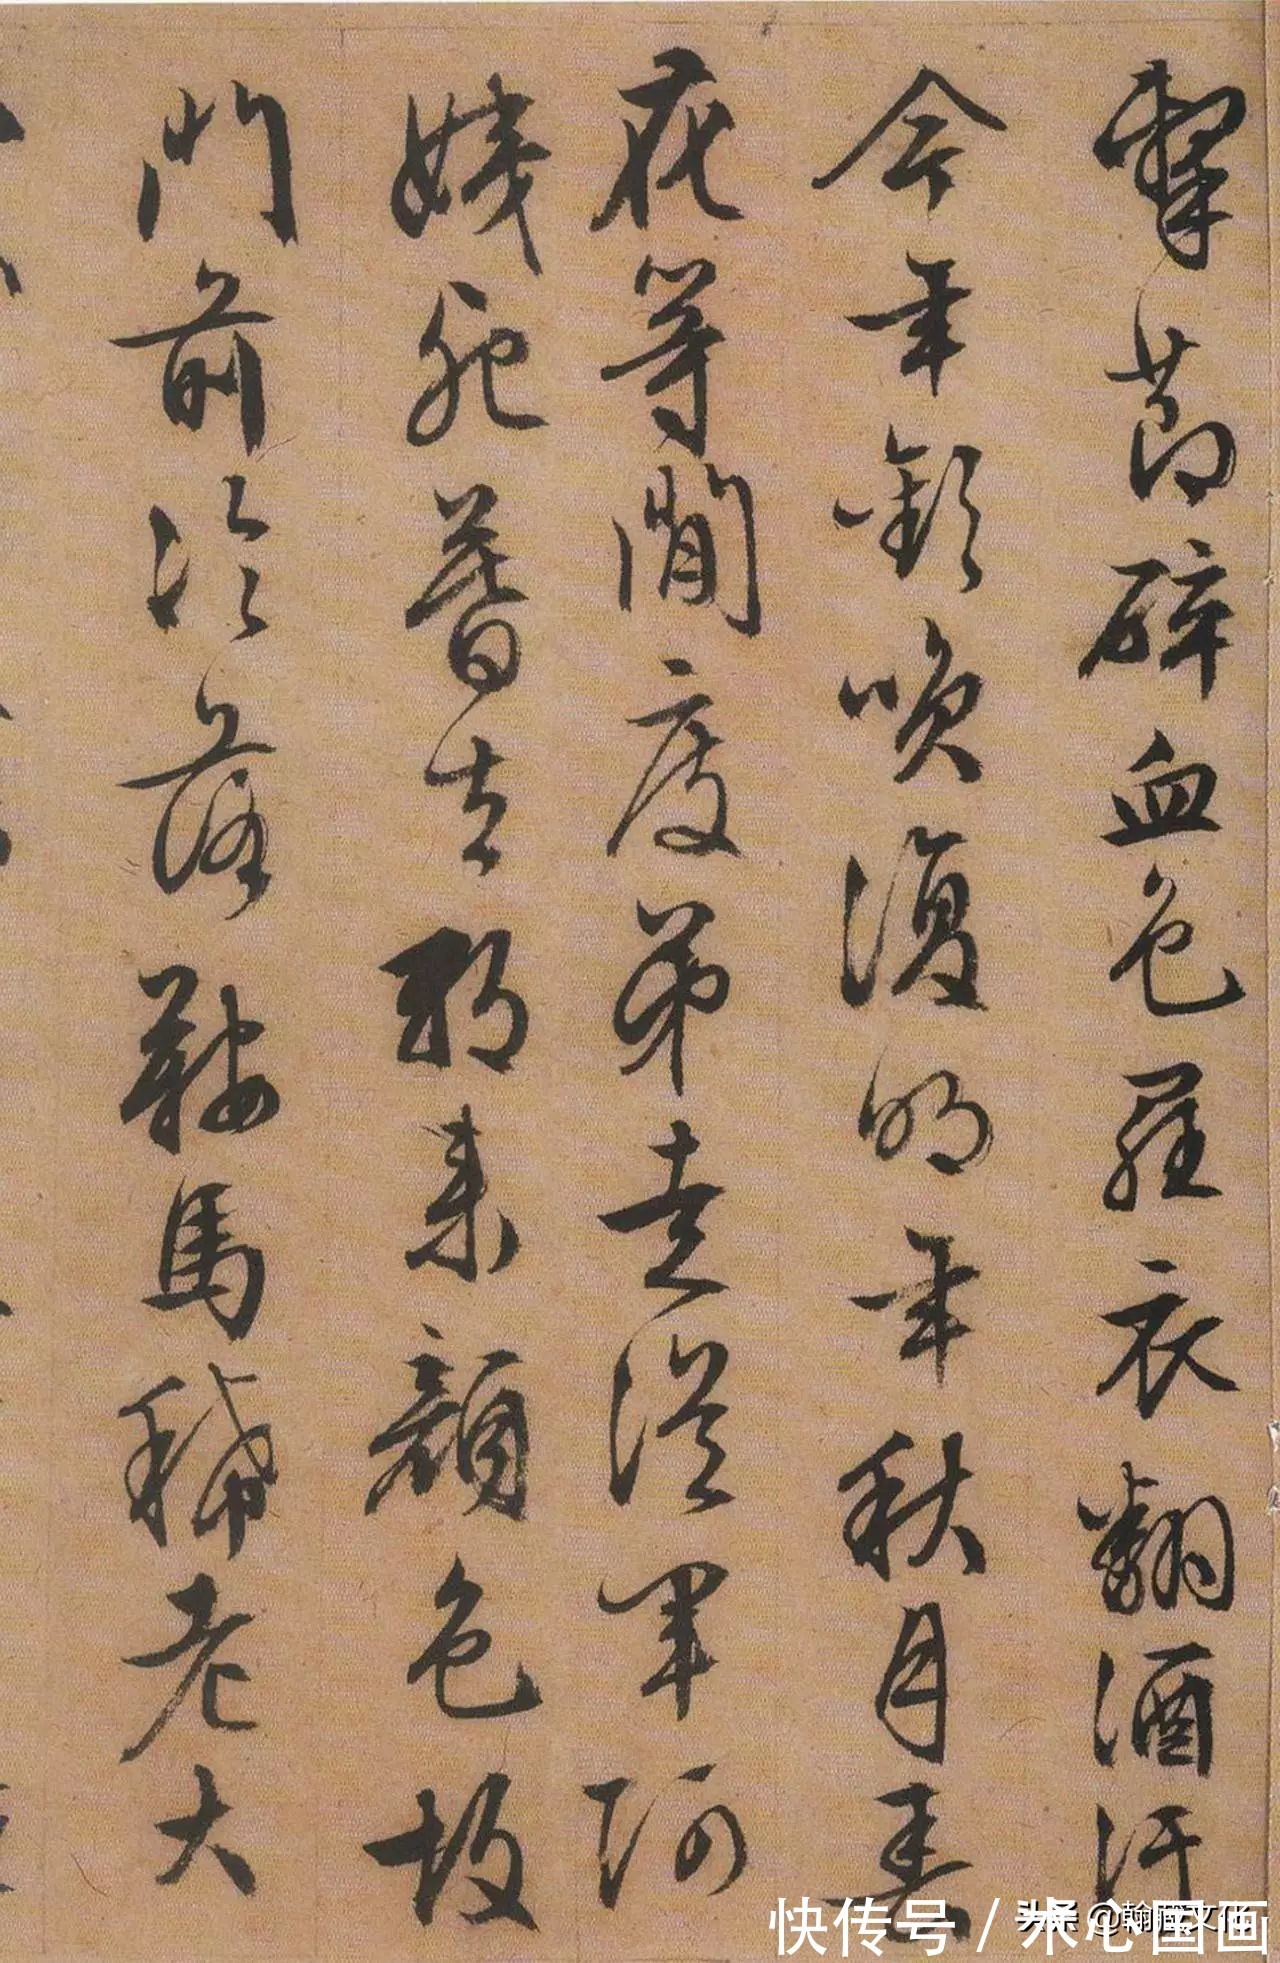 擊節碎血色羅衣翻酒汙
今年歡咲復明年秋月春
花等閒度弟走從軍阿
姨死暮去朝來顏色故
門前冷落鞍馬稀老大
快传号 / 木心国画